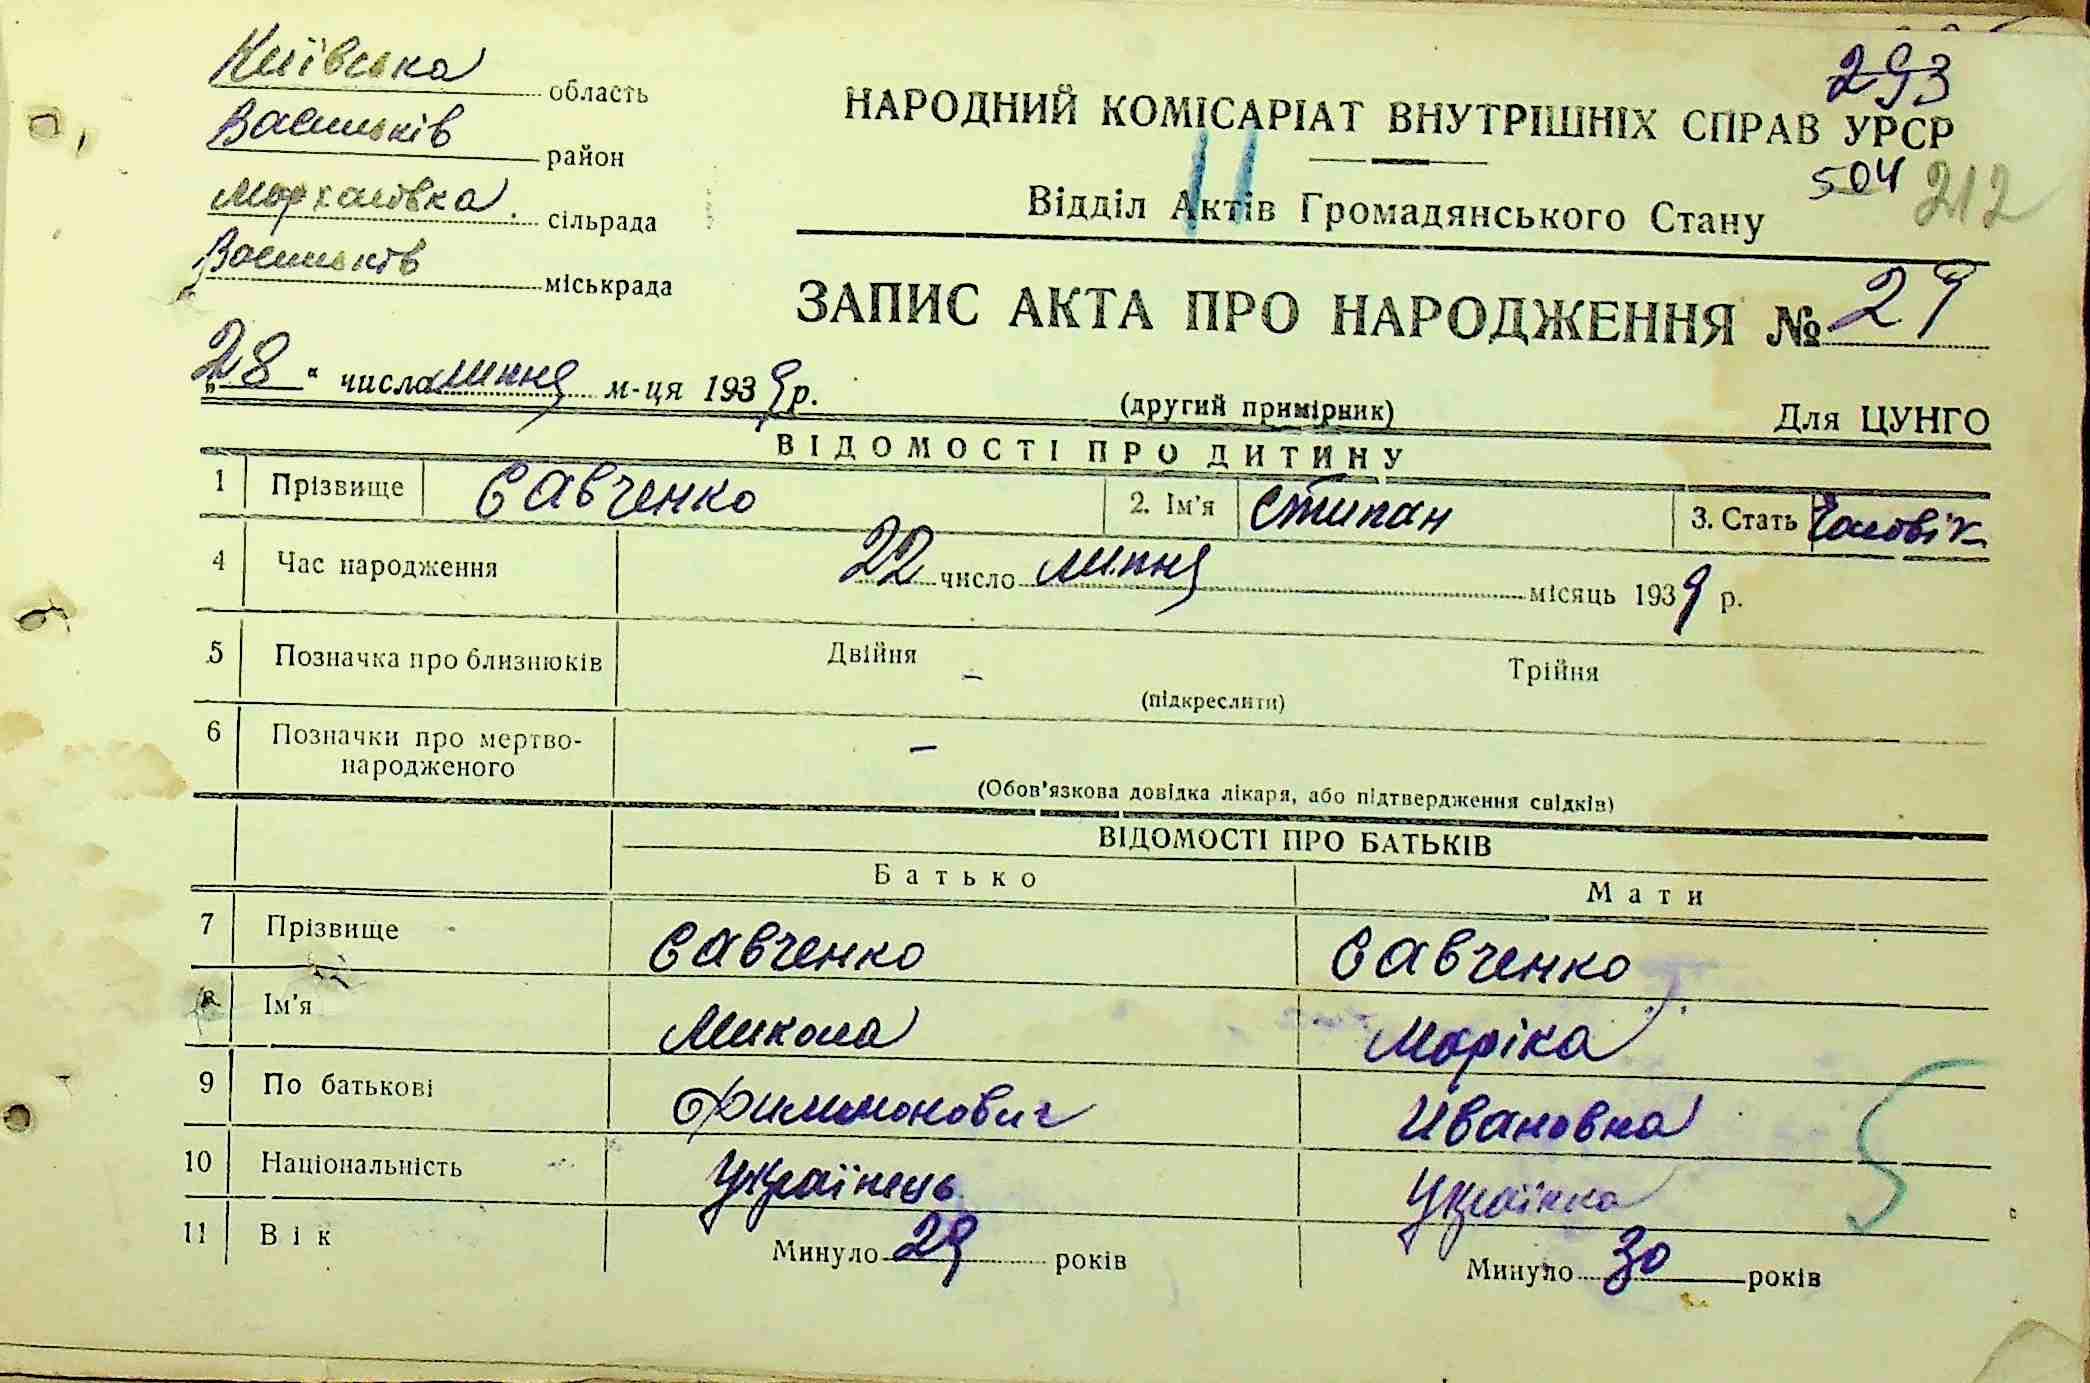 Київська область
Васильків район
Мархалівка сільрада
Васильків міськрада
293
НАРОДНИЙ КОМІСАРІАТ ВНУТРІШНІХ СПРАВ УРСР
504 212
11
Відділ Актів Громадянського Стану
ЗАПИС АКТА ПРО НАРОДЖЕННЯ № 29
„28“ числа липня м-ця 1939 р.
(другий примірник) Для ЦУНГО
ВІДОМОСТІ ПРО ДИТИНУ
1 Прізвище Савченко 2. Ім'я Стипан 3. Стать Чоловік
4 Час народження 22 число липня місяць 1939 р.
5 Позначка про близнюків Двійня - Трійня
(підкреслити)
6 Позначки про мертво-
народженого -
(Обов'язкова довідка лікаря, або підтвердження свідків)
ВІДОМОСТІ ПРО БАТЬКІВ
Батько Мати
7 Прізвище Савченко Савченко
8 Ім'я Микола Маріка
9 По батькові Филимонович Ивановна
10 Національність Українець Українка
11 Вік Минуло 29 років Минуло 30 років